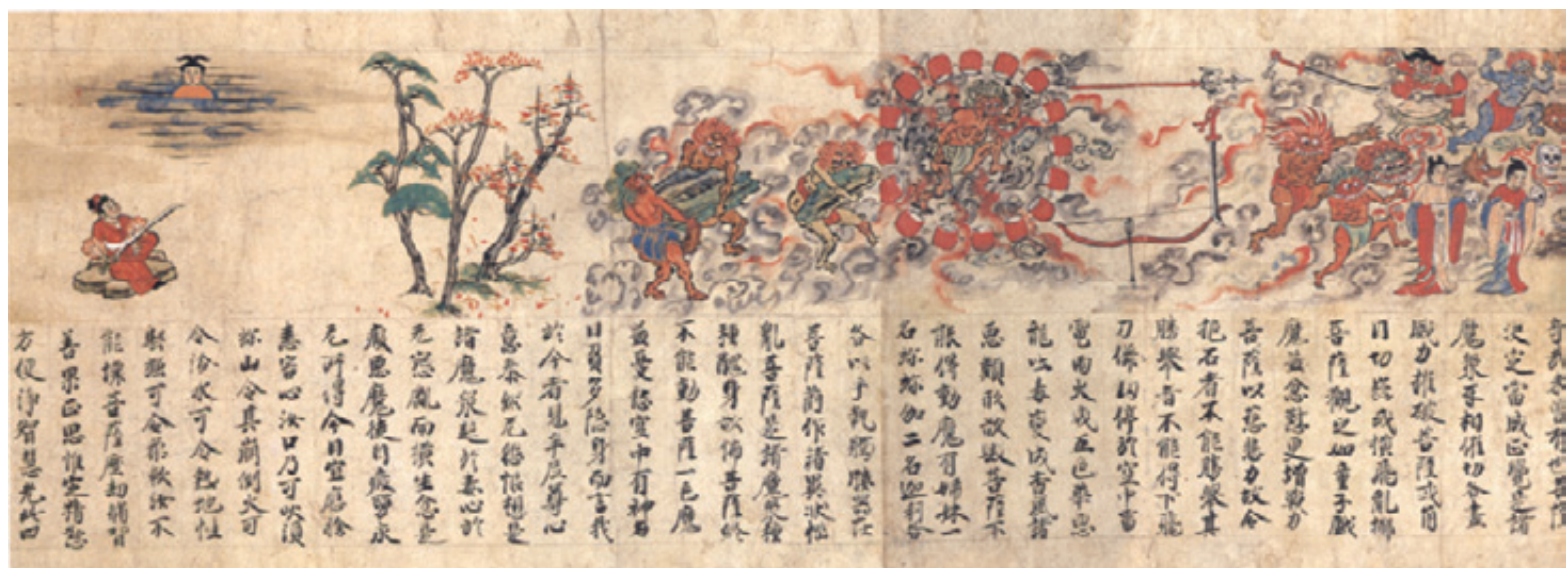 決定當成正覺是諸
魔衆互相催切各盡
威力摧破菩薩或角
目切齒或橫飛亂擲
菩薩觀之如童子戲
魔益忿懟更增戰力
菩薩以慈悲力故令
抱石者不能勝舉其
勝舉者不能得下飛
刀儛劔停於空中雷
電雨火成五色華惡
龍吐毒變成香風諸
惡類形欲毀菩薩不
能得動魔有姉妹一
名弥弥伽二名迦利各
各以手執髑髏器在
菩薩前作諸異狀惱
亂菩薩是諸魔衆種
種醜身欲怖菩薩終
不能動菩薩一毛魔
益憂愁空中有神名
曰負多隱身而言我
於今者見牟尼尊心
意泰然无怨恨想是
諸魔衆起於毒心於
无怨處而橫生忿是
癡惡魔徒自疲勞永
无所得今日宜應捨
恚害心汝口乃可吹須
弥山令其崩倒火可
令冷水可令熱地性
堅強可令柔軟汝不
能壞菩薩歷劫脩習
善果正思惟定精懃
方便淨智慧光此四